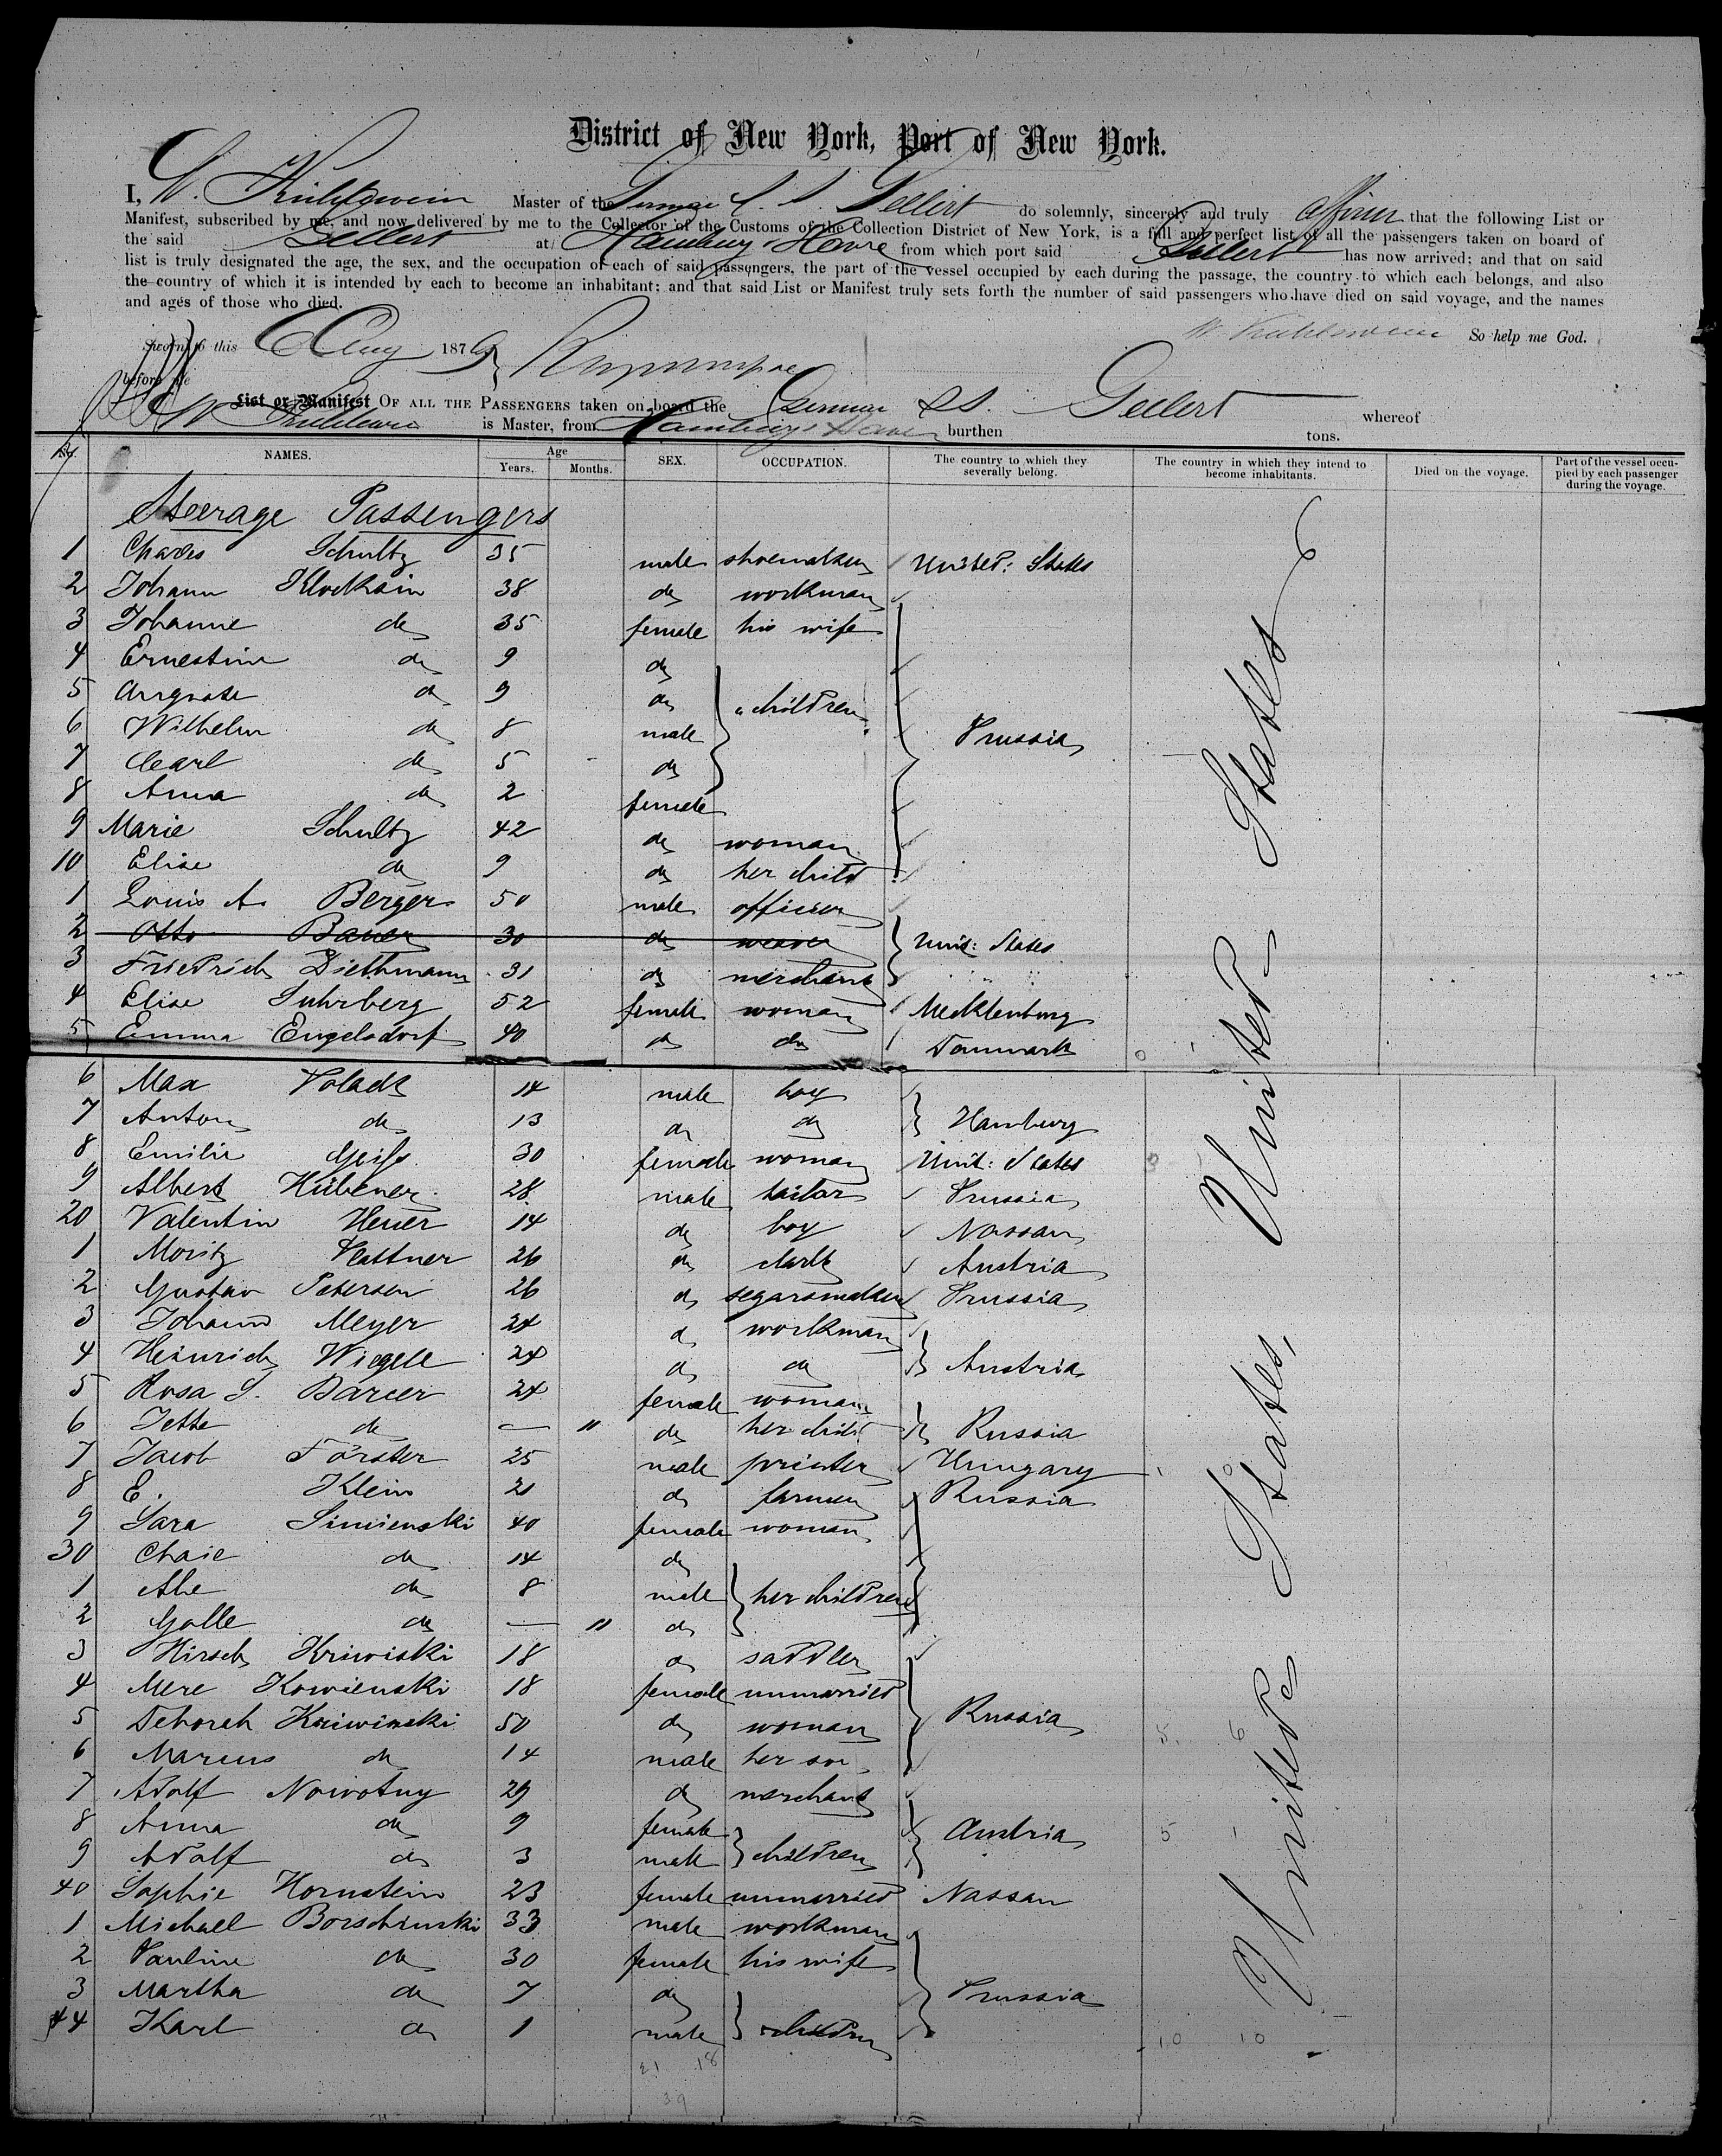 District of New York, Port of New York.
I, W. Kuhlewein Master of the German S. S. Gellert do solemnly, sincerely and truly affirm that the following List or
Manifest, subscribed by me, and now delivered by me to the Collector of the Customs of the Collection District of New York, is a full and perfect list of all the passengers taken on board of
the said Gellert at Hamburg Havre from which port said Gellert has now arrived; and that on said
list is truly designated the age, the sex, and the occupation of each of said passengers, the part of the vessel occupied by each during the passage, the country to which each belongs, and also
the country of which it is intended by each to become an inhabitant; and that said List or Manifest truly sets forth the number of said passengers who have died on said voyage, and the names
and ages of those who died.
W. Kuhlewein So help me God.
Sworn to this Aug 1879
before me
List or Manifest OF ALL THE PASSENGERS taken on board the German SS. Gellert whereof
W Kuhlewein is Master, from Hamburg & Havre burthen tons.
NAMES. Age Years. Months. SEX. OCCUPATION. The country to which they severally belong. The country in which they intend to become inhabitants. Died on the voyage. Part of the vessel occupied by each passenger during the voyage.
Steerage Passengers
1 Charles Schultz 35 male shoemaker United: States
2 Johann Klockhain 38 do workman
3 Johanne do 35 female his wife
4 Ernestine do 9 do
5 do 9 do children
6 Wilhelm do 8 male Prussia
7 Carl do 5 do
8 Anna do 2 female
9 Marie Schultz 42 do woman
10 Elise do 9 do her child
1 Louis A. Berger 50 male officier
2 Otto Bauer 30 do weaver Unit: States
3 Friedrich Diethmann 31 do merchant
4 Elise Suhrberg 52 female woman Mecklenburg
5 Emma Engelsdorf 40 do do Danmark
6 Max Polack 14 male boy
7 Anton do 13 do do Hamburg
8 Emilie Geiss 30 female woman Unit: States
9 Albert Hübener 28 male tailor Prussia
20 Valentin Heuer 14 do boy Nassau
1 Moritz Plattner 26 do clerk Austria
2 Gustav Petersen 26 do segarsmaker Prussia
3 Johann Meyer 24 do workman
4 Heinrich Wiegele 24 do do Austria
5 Rosa S. Barcer 24 female woman
6 Jette do — 11 do her child Russia
7 Jacob Förster 25 male printer Hungary
8 E. Klein 21 do farmer Russia
9 Sara Simienski 40 female woman
30 Chaie do 14 do
1 Abe do 8 male her children
2 Golle do — 11 do
3 Hirsch Kriwiski 18 do saddler
4 Mere Kowienski 18 female unmarried
5 Deborah Kriwinski 50 do woman Russia
6 Marcus do 14 male her son
7 Adolf Nowotny 29 do merchant
8 Anna do 9 female Austria
9 Adolf do 3 male children
40 Sophie Hornstein 23 female unmarried Nassau
1 Michael Borschinski 33 male workman
2 Pauline do 30 female his wife
3 Martha do 7 do Prussia
44 Karl do 1 male children
United States
United States,
21 18
39
10 10